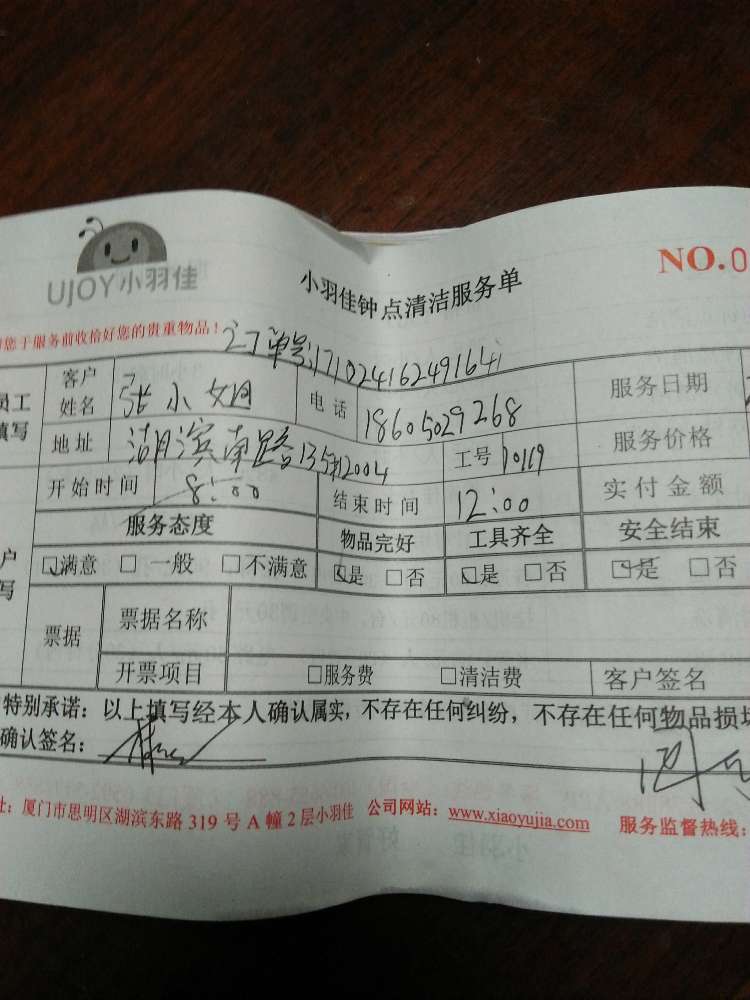 UJOY小羽佳
小羽佳钟点清洁服务单
NO.0
您于服务前收拾好您的贵重物品!
订单号:171024162491641
员工填写
客户姓名 张小姐 电话 18605029268 服务日期
地址 湖滨南路135#2004 工号 10169 服务价格
开始时间 8:00 结束时间 12:00 实付金额
服务态度 物品完好 工具齐全 安全结束
☑满意 □一般 □不满意 ☑是 □否 ☑是 □否 ☑是 □否
户写
票据 票据名称
开票项目 □服务费 □清洁费 客户签名
特别承诺:以上填写经本人确认属实,不存在任何纠纷,不存在任何物品损坏
确认签名:
址:厦门市思明区湖滨东路 319 号 A 幢 2 层小羽佳 公司网站:www.xiaoyujia.com 服务监督热线: